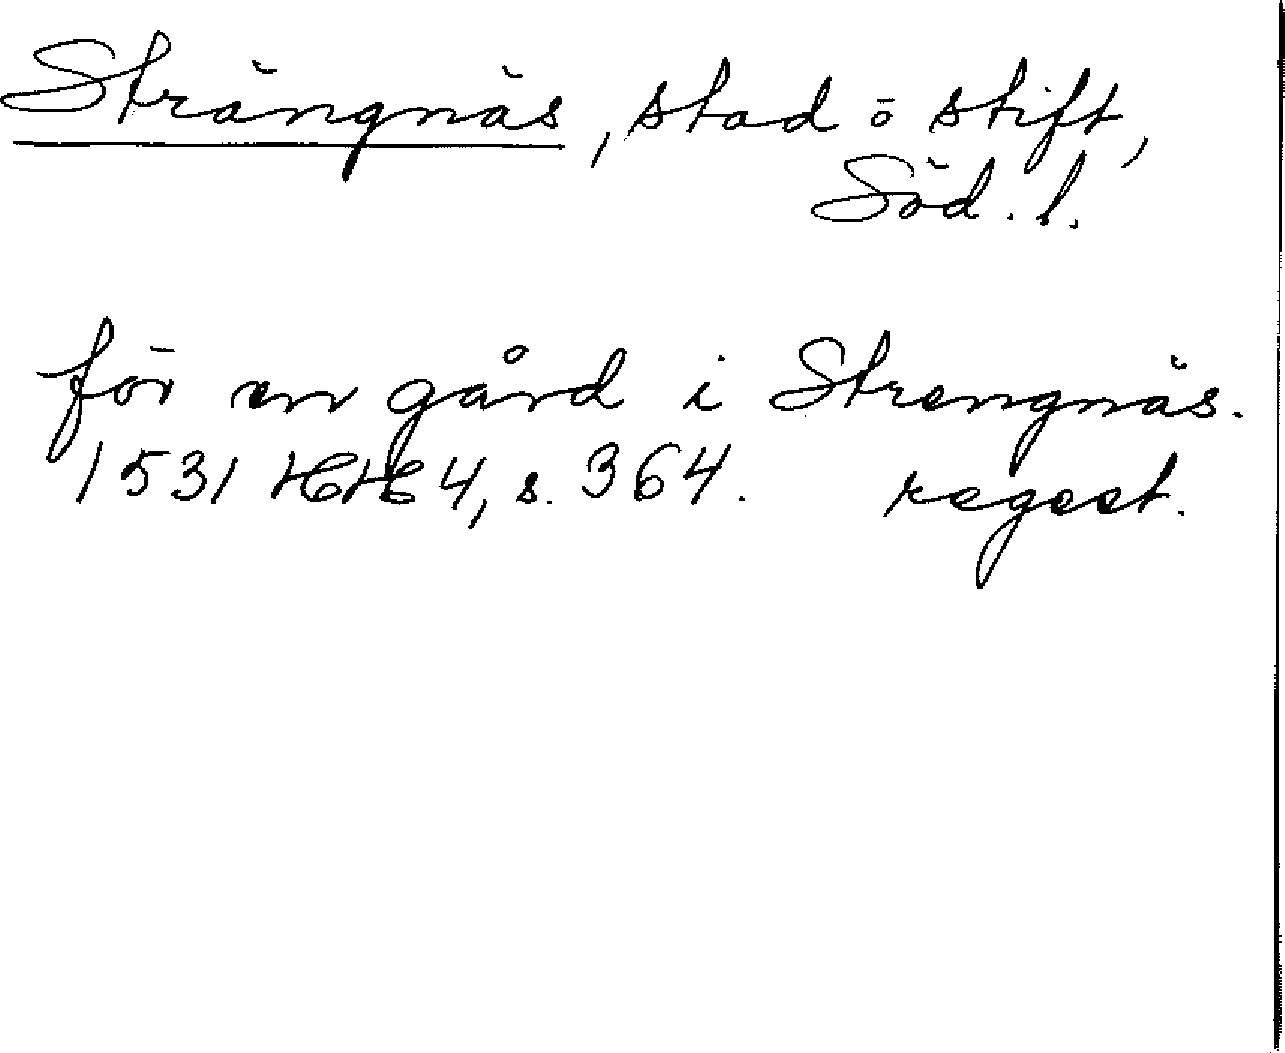 Strängnäs, stad o stift,
Söd. l.
för en gård i Strengnäs.
1531 HH 4, s. 364. regest.